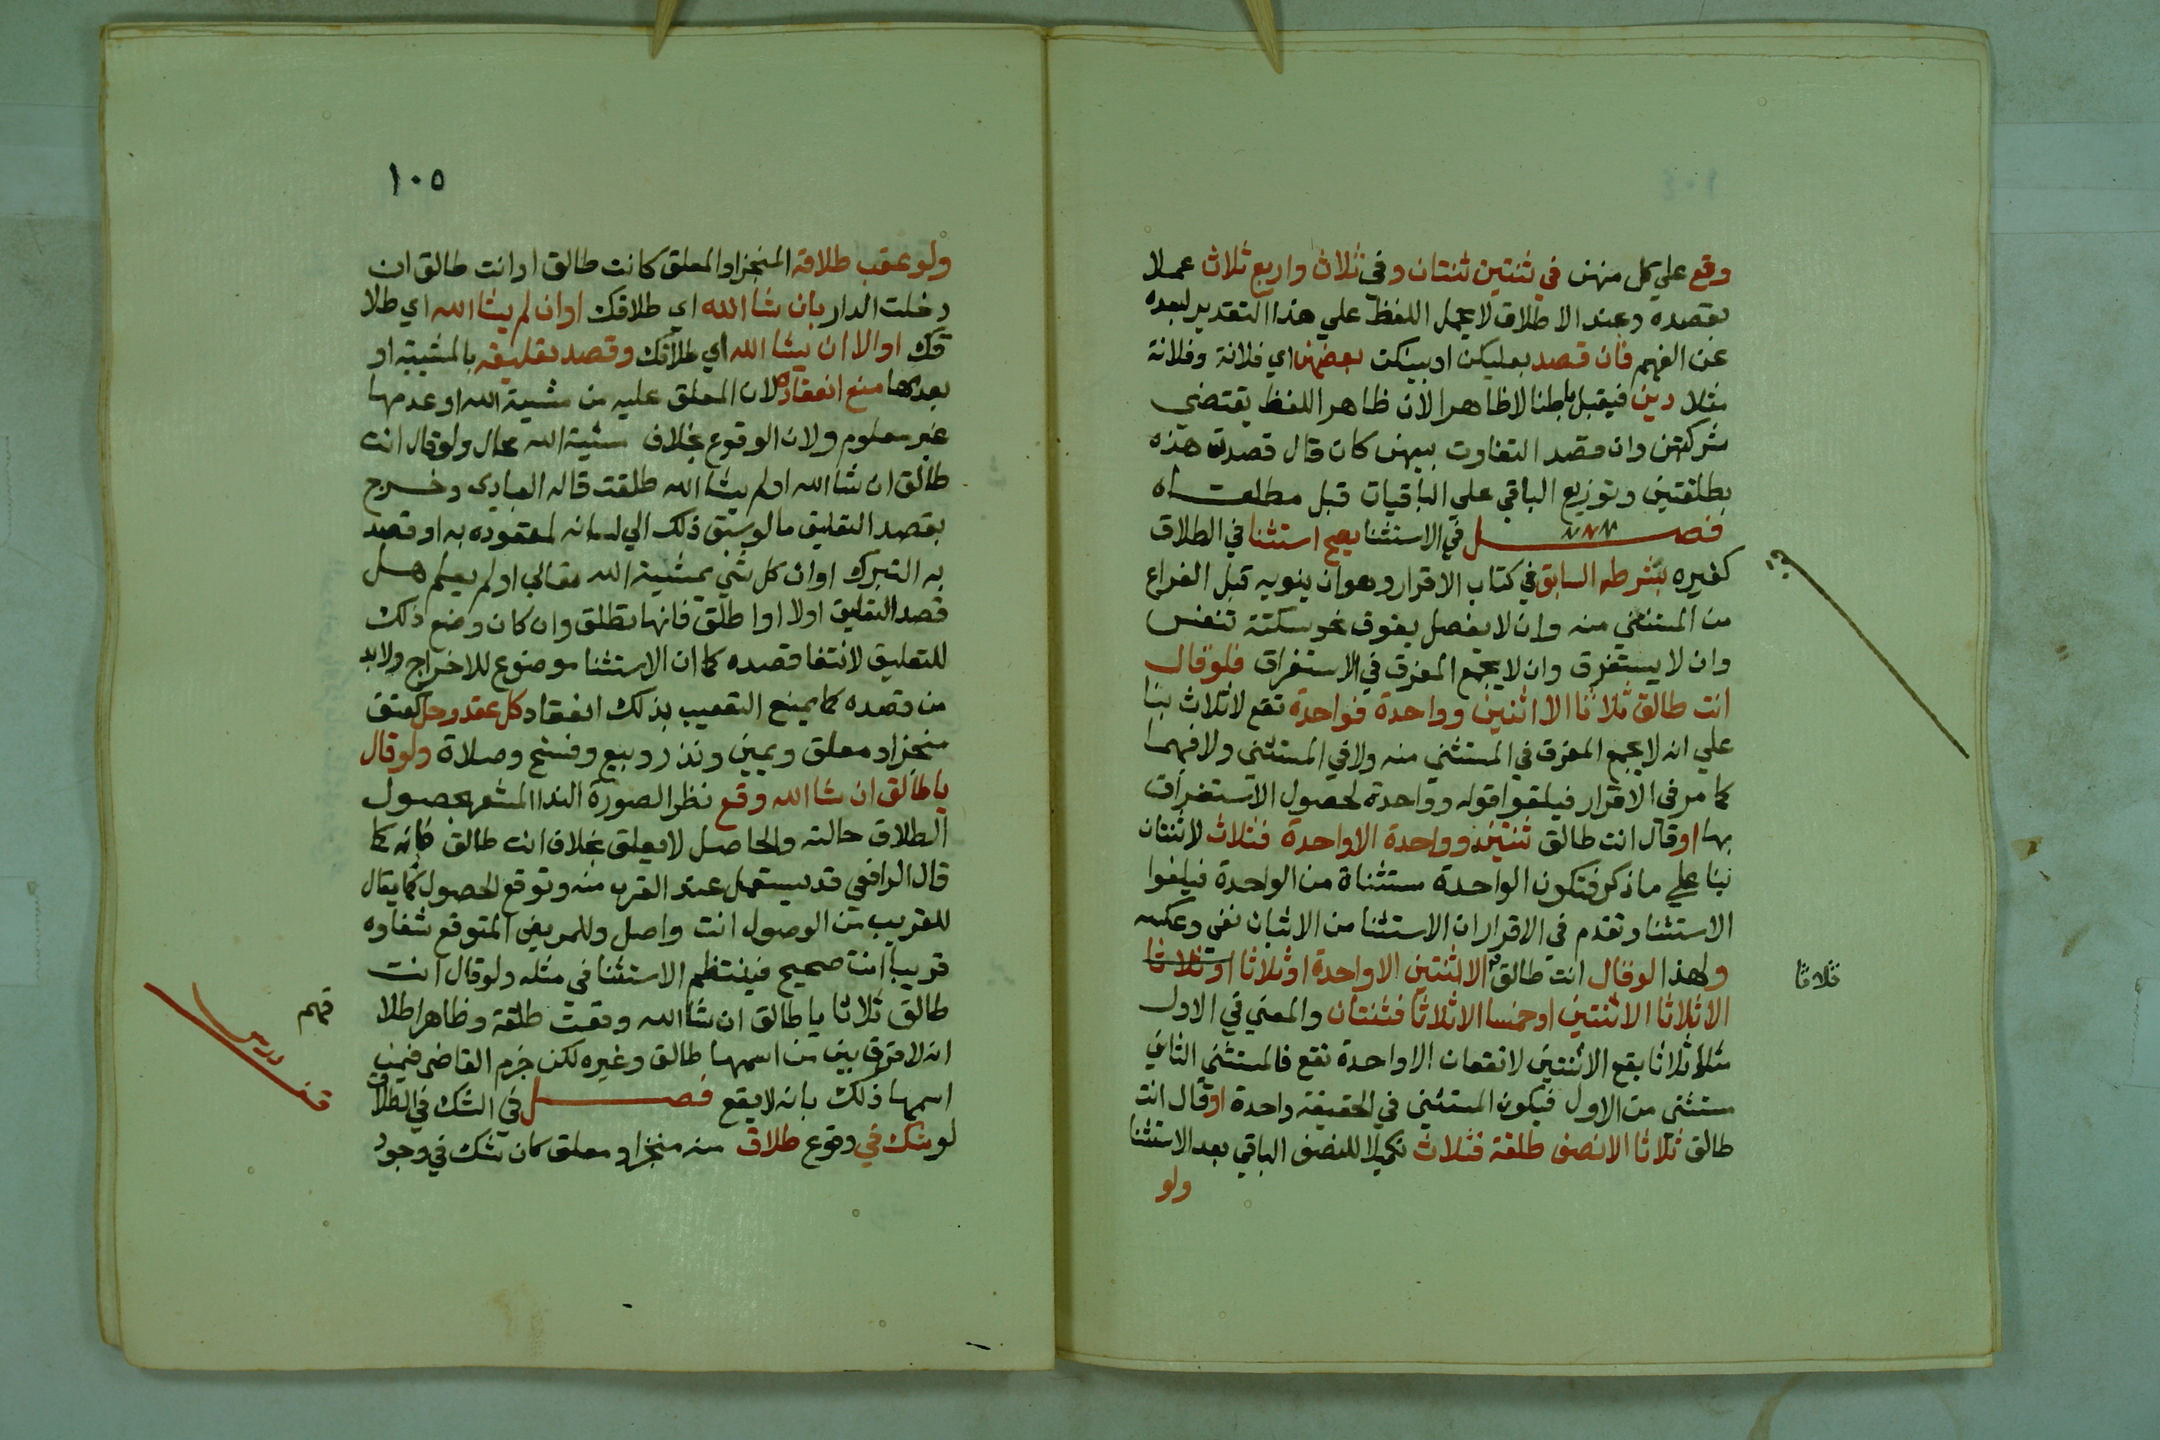 وقع علي كل منهن في ثنتين ثنتان وفي ثلاث واربع ثلاث عملا
بقصده وعند الاطلاق لا يحمل اللفظ علي هذا التقدير لبعده
عن الفهم فان قصد بعليكن او بينكن بعضهن اي فلانة وفلانة
مثلا دين فيقبل باطنا لا ظاهرا لان ظاهر اللفظ يقتضي
شركتهن وان قصد التفاوت بينهن كان قال قصدت هذه
بطلقتين وتوزيع الباقي علي الباقيات قبل مطلعـــاه
فصـــــــل في الاستثنا يصح استثنا في الطلاق
كغيره بشرطه السابق في كتاب الاقرار وهو ان ينويه قبل الفراغ
من المستثني منه وان لا يفصل بفوق نحو سكتة تنفس
وان لا يستغرق وان لا يجمع المفرق في الاستغراق فلو قال
انت طالق ثلاثا الا اثنين وواحدة فواحدة تقع لا ثلاث بنا
علي انه لا يجمع المفرق في المستثني منه ولا في المستثني ولا فيهما
كما مر في الاقرار فيلغوا قوله وواحدة لحصول الاستغراق
بها او قال انت طالق ثنتين وواحدة الا واحدة فثلاث لا ثنتان
بنا علي ما ذكر فتكون الواحدة مستثناة من الواحدة فيلغوا
الاستثنا وتقدم في الاقرار ان الاستثنا من الاثبات نفي وعكسه
ولهذا لو قال انت طالق الا ثنتين الا واحدة او ثلاثا او ثلاثا
ثلاثا
الا ثلاثا الا ثنتين او خمسا الا ثلاثا فثنتان والمعني في الاول
مثلا ثلاثا يقع الا ثنتين لا تقعان الا واحدة تقع فالمستثني الثاني
مستثني من الاول فيكون المستثني في الحقيقة واحدة او قال انت
طالق ثلاثا الا نصف طلقة فثلاث تكميلا للنصف الباقي بعد الاستثنا
ولو
١٠٥
ولو عقب طلاقه المنجز او المعلق كانت طالق او انت طالق ان
دخلت الدار بان شا الله اي طلاقك او ان لم يشا الله اي طلا
قك او الا ان يشا الله اي طلاقك وقصد تعليقه بالمشيية او
بعدمها منع انعقاده لان المعلق عليه من مشيية الله او عدمها
غير معلوم ولان الوقوع بخلاف مشيية الله محال ولو قال انت
طالق ان شا الله او لم يشا الله طلقت قاله العبادي وخـرج
بقصد التعليق ما لو سبق ذلك الي لسانه لتعوده به او قصد
به التبرك او ان كل شي بمشيية الله تعالي او لم يعلم هـل
قصد التعليق اولا او اطلق فانها تطلق وان كان وضع ذلك
للتعليق لانتفا قصده كما ان الاستثنا موضوع للاخراج ولا بد
من قصده كما يمنع التعقيب بذلك انعقاد كل عقد وحل كعتق
منجز او معلق ويمين ونذر وبيع وفسخ وصلاة ولو قال
يا طالق ان شا الله وقع نظرا لصورة الندا المشعر بحصول
الطلاق حالته والحاصل لا يعلق بخلاف انت طالق فانه كما
قال الرافعي قد يستعمل عند القرب منه وتوقع الحصول كما يقال
للقريب من الوصول انت واصل وللمريض المتوقع شفاوه
قريبا انت صحيح فينتظم الاستثنا في مثله ولو قال انت
طالق ثلاثا يا طالق ان شا الله وقعت طلقة وظاهر اطلا
قهم
انه لا فرق بين من اسمها طالق وغيره لكن جزم القاضي فيمن
اسمها ذلك بانه لا يقع فصـــــــل في الشك في الطلاق
لو شك في وقوع طلاق منه منجز او معلق كان شك في وجود